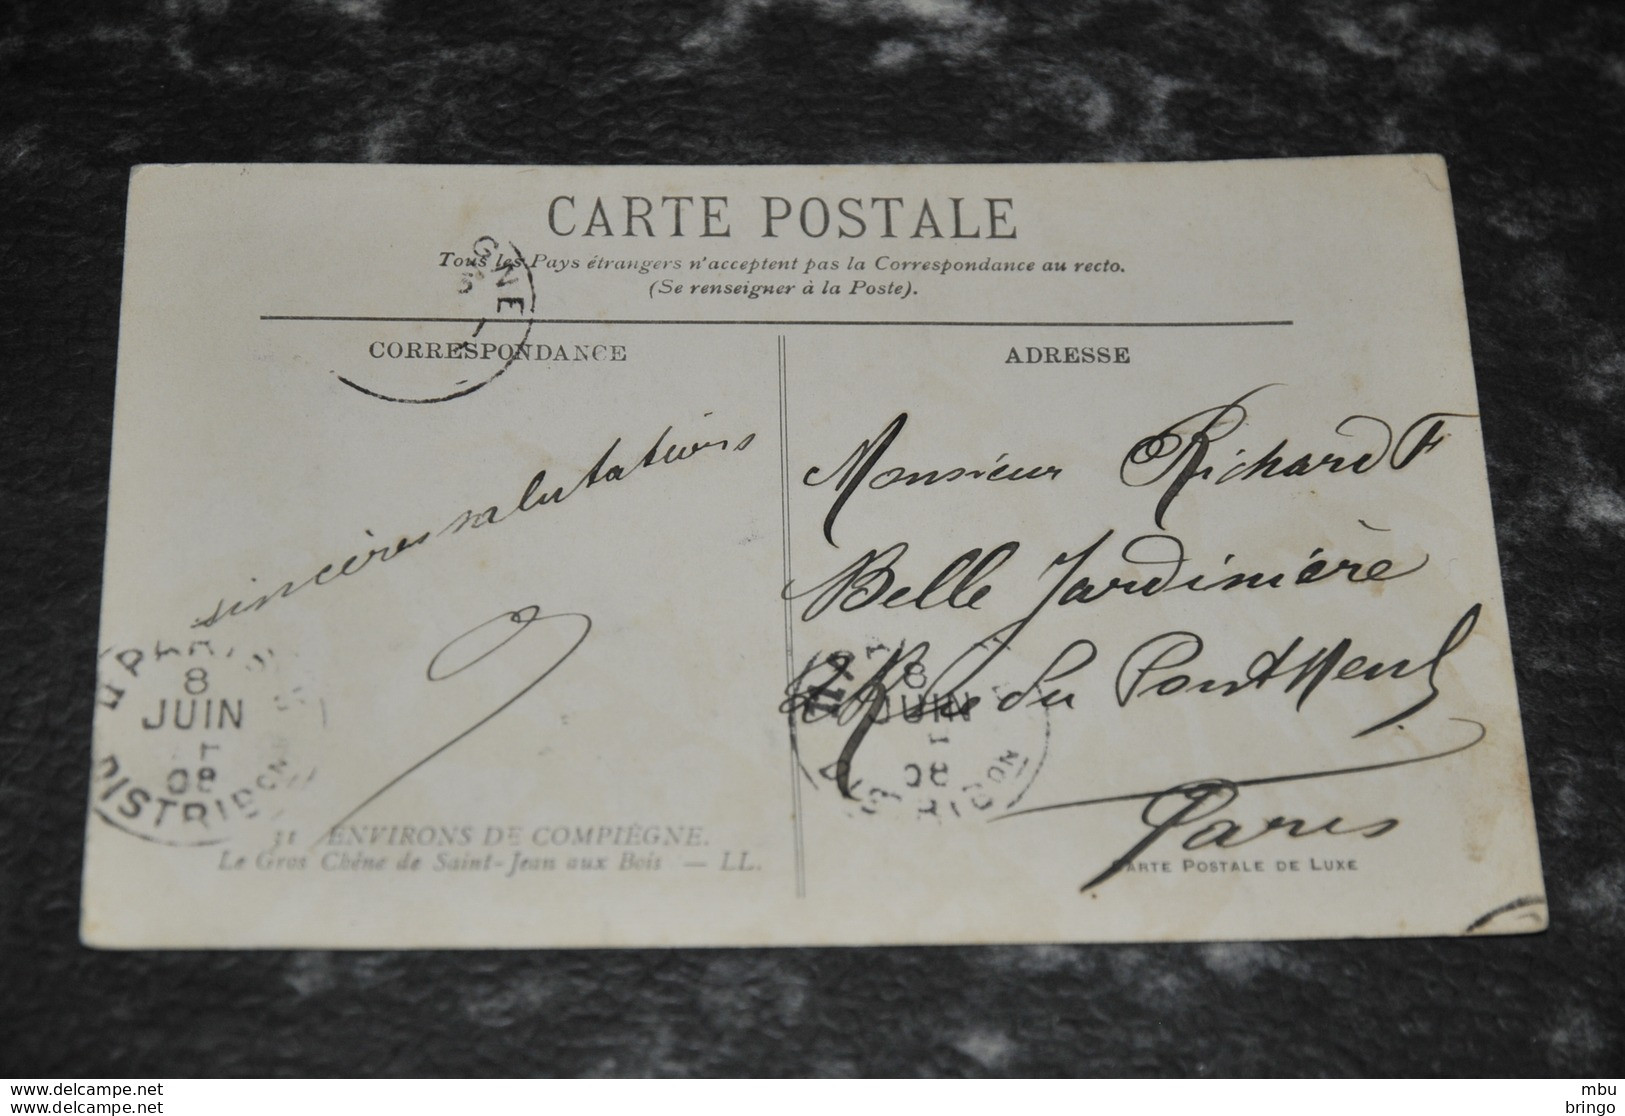 CARTE POSTALE
Tous les Pays étrangers n'acceptent pas la Correspondance au recto.
(Se renseigner à la Poste).
GNE
CORRESPONDANCE
sincères salutations
PARIS
8
JUIN
08
DISTRIBON
31 ENVIRONS DE COMPIÈGNE.
Le Gros Chêne de Saint-Jean aux Bois — LL.
ADRESSE
Monsieur Richard F
Belle Jardinière
2 Rue du Pont Neuf
Paris
8
JUIN
08
CARTE POSTALE DE LUXE
www.delcampe.net
www.delcampe.net
mbu
bringo